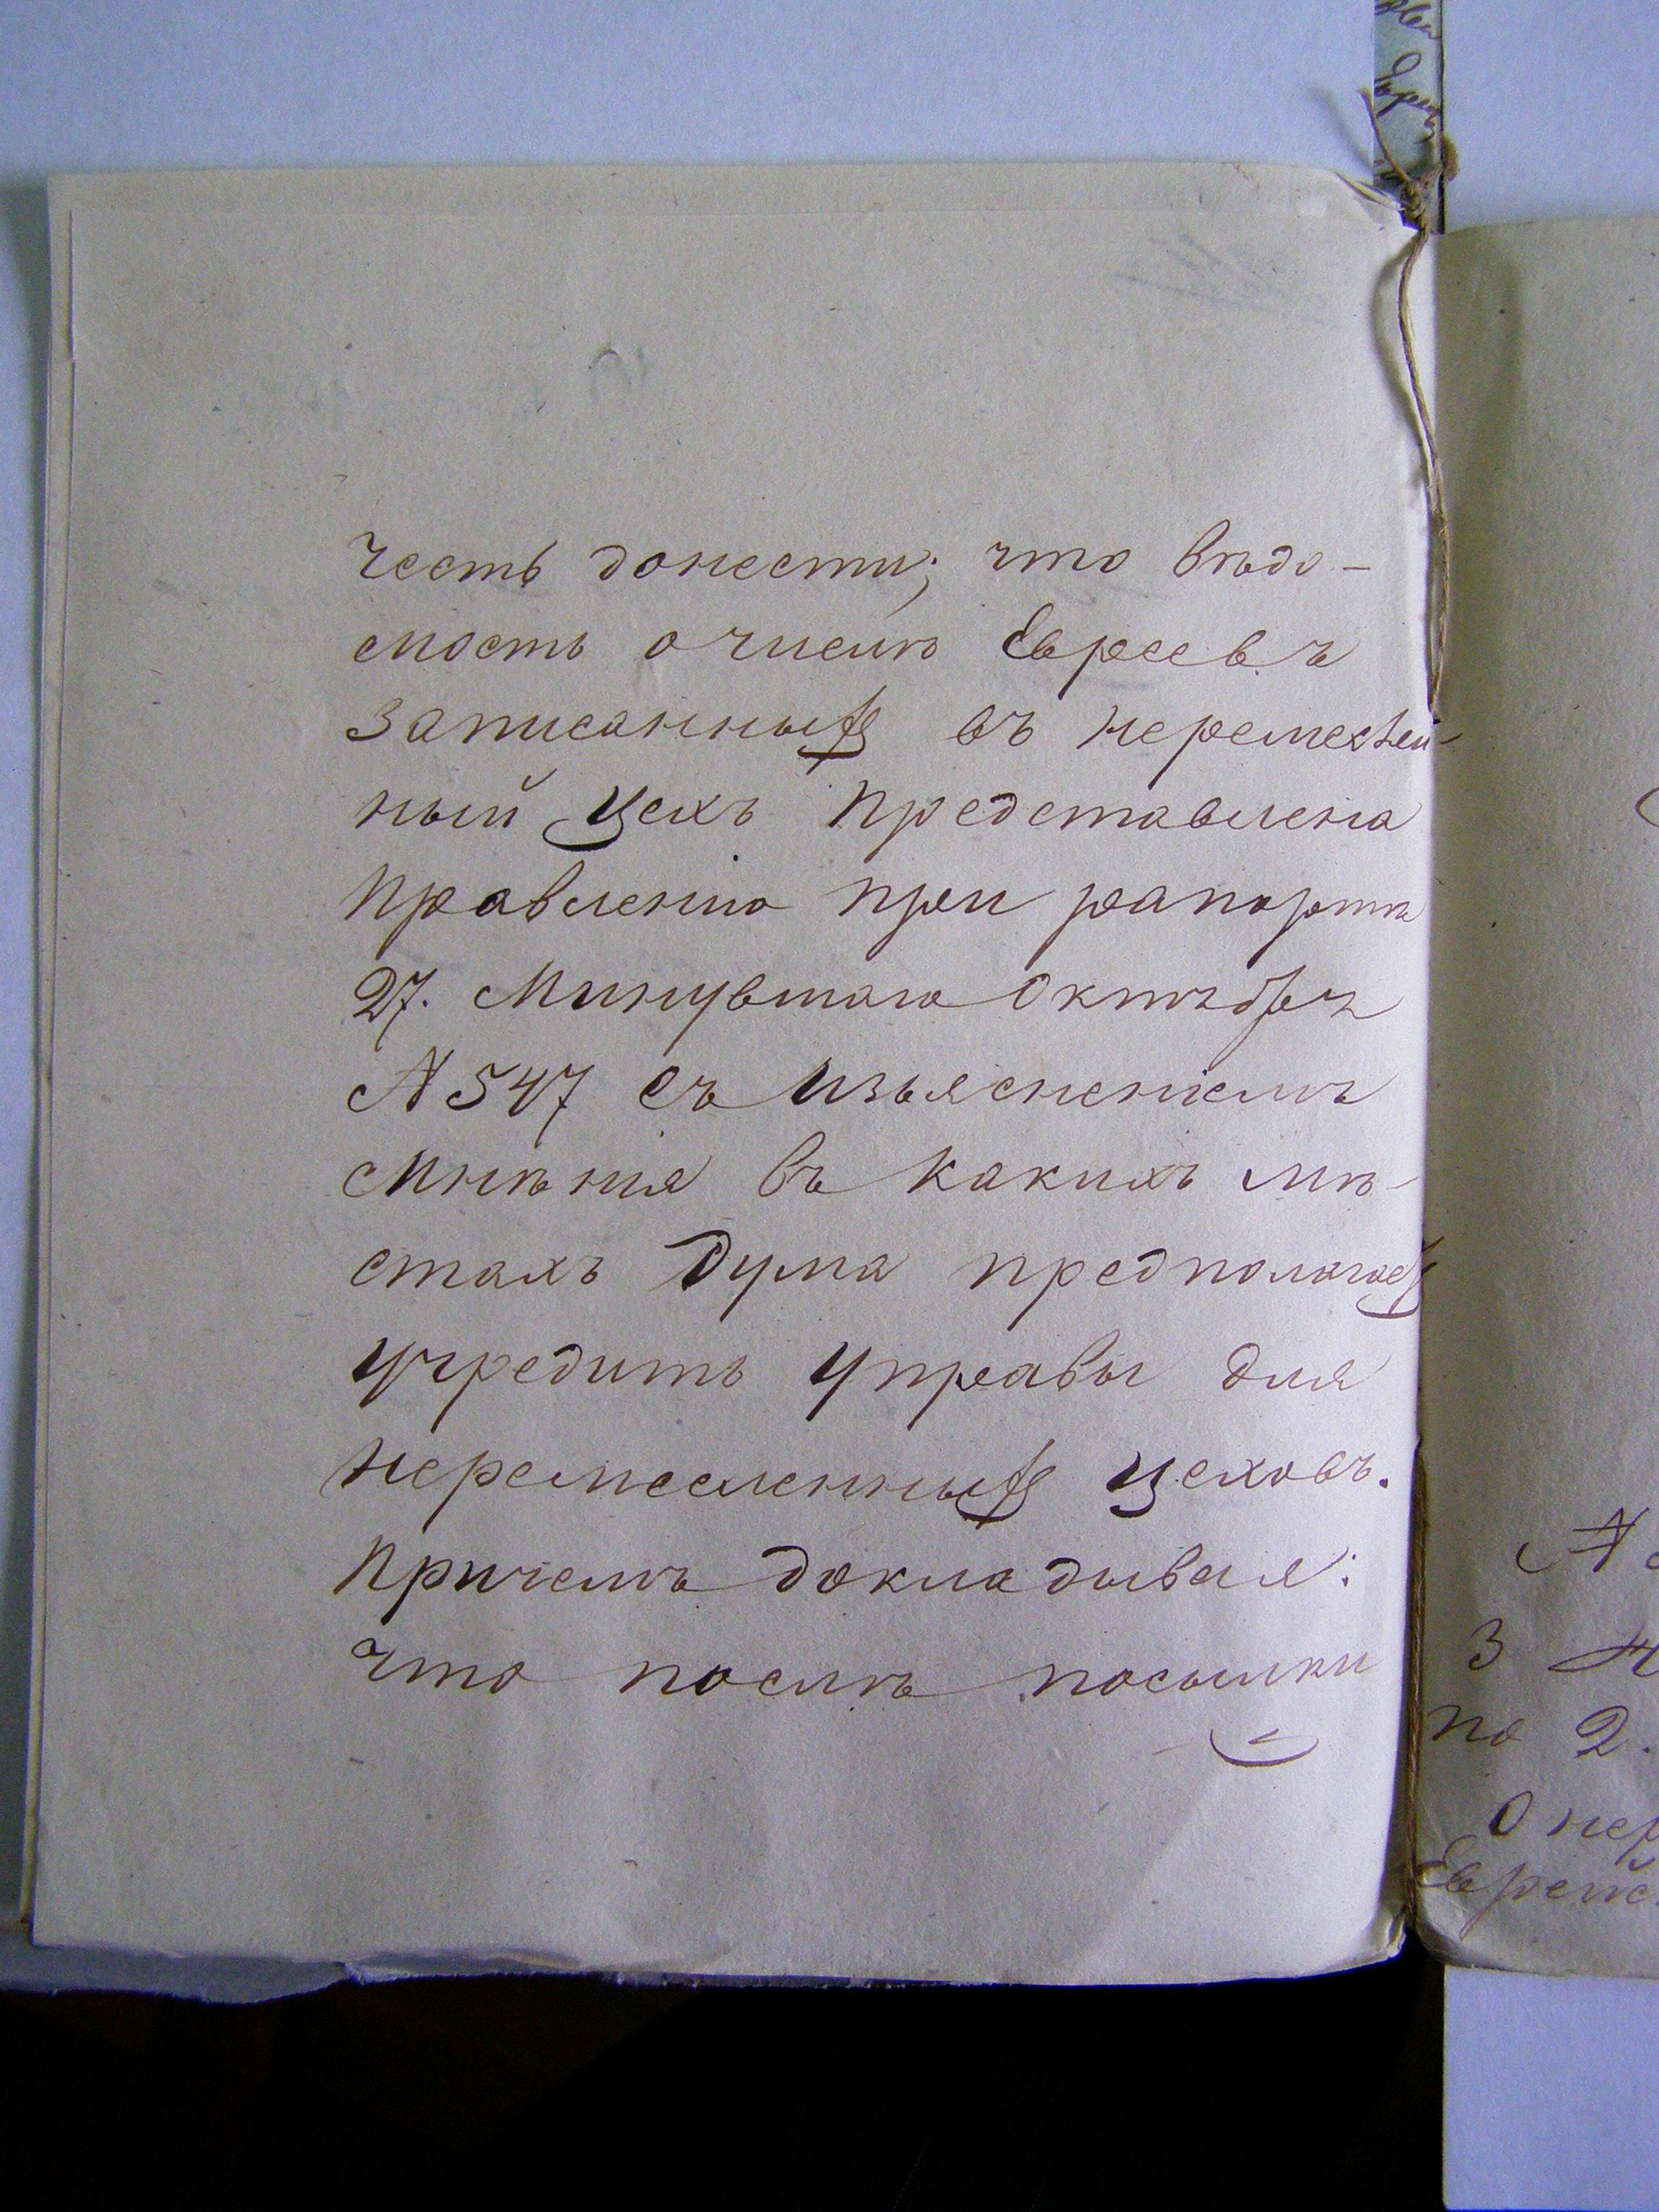 честь донести; что вѣдо-
мость о числѣ Евреевъ
записанныхъ въ неремеслен-
ный цехъ представлена
Правленію при рапортѣ
27. Минувшаго Октября
№ 547 съ изъясненіемъ
мнѣнія въ какихъ мѣ-
стахъ Дума предполагаетъ
учредить управы для
неремесленныхъ цеховъ.
Причемъ докладывая:
что послѣ посылки
№
3
по 2.
О нер
Еврейс